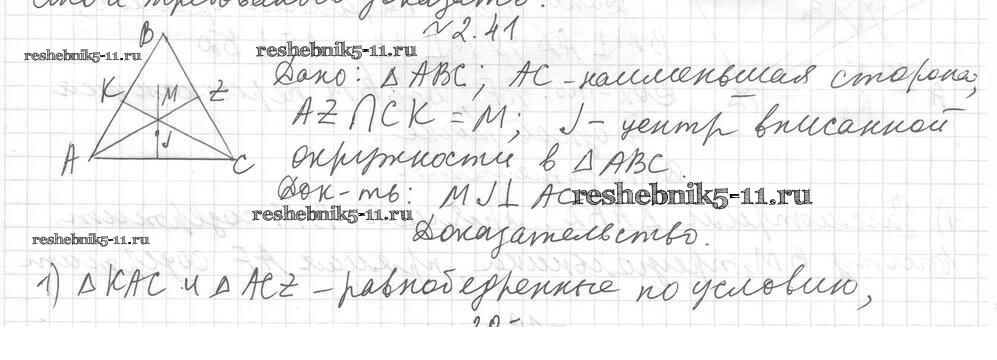 что и требовалось доказать.
№2.41
B
reshebnik5-11.ru
reshebnik5-11.ru
Дано: △ABC; AC - наименьшая сторона;
K M Z
AZ ∩ CK = M; J - центр вписанной
J
A C
окружности в △ABC.
Док-ть: MJ ⊥ AC
reshebnik5-11.ru
reshebnik5-11.ru
reshebnik5-11.ru
Доказательство.
1) △KAC и △ACZ - равнобедренные по условию,